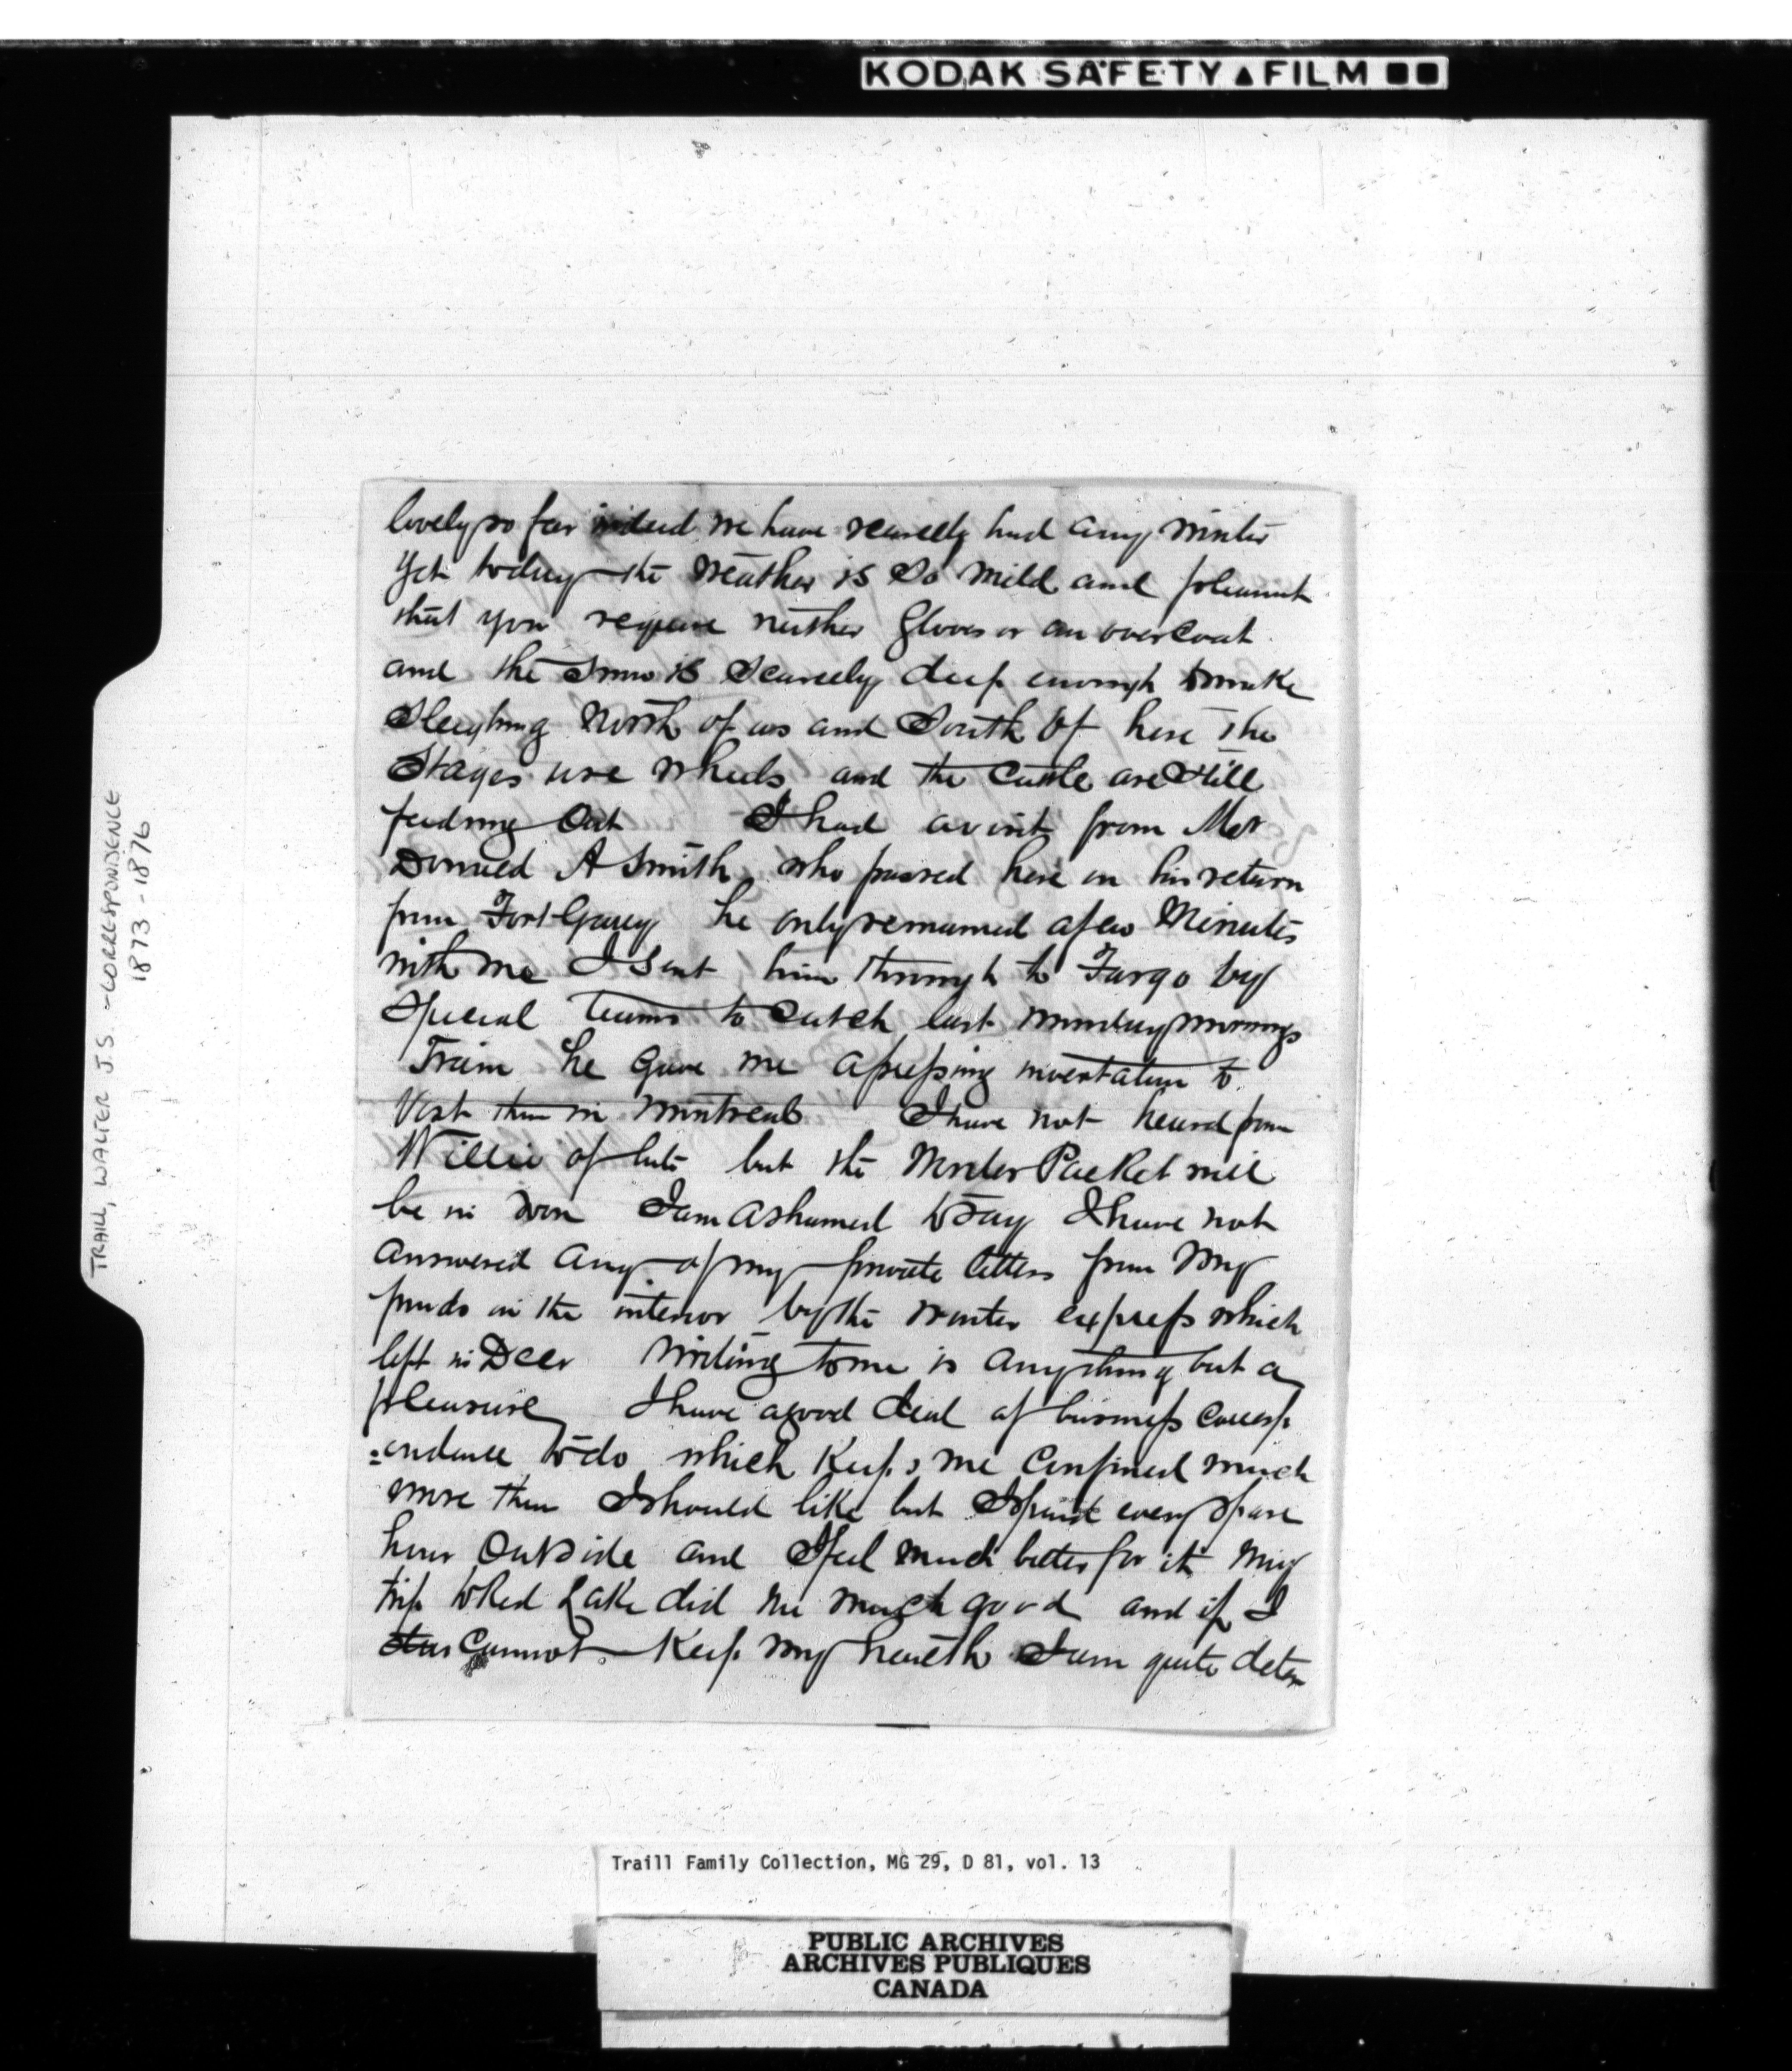 KODAK SAFETY ▲ FILM ■■
TRAILL, WALTER J.S. - CORRESPONDENCE
1873-1876
lovely so far indeed we have scarcely had any winter
yet today the weather is so mild and pleasant
that you require neither gloves or an overcoat
and the snow is scarcely deep enough to make
sleighing North of us and South of here the
Stages use wheels and the Cattle are Still
feeding Out I had a visit from Mr
Donald A Smith who passed here on his return
from Fort Garry he only remained a few Minutes
with me I sent him through to Fargo by
special teams to Catch last Monday mornings
Train he gave me a pressing invertation to
Vist them in Montreal I have not heard from
Willie of late but the Winter Packet will
be in soon I am ashamed to say I have not
answered any of my private letters from my
friends in the interior by the winter express which
left in Decr Writing to me is anything but a
pleasure I have a good deal of business corresp
=ondence to do which Keeps me Confined much
more than I should like but I spend every spare
hour Outside and I feel much better for it My
trip to Red Lake did me much good and if I
cannot Keep my health I am quite deter
Traill Family Collection, MG 29, D 81, vol. 13
PUBLIC ARCHIVES
ARCHIVES PUBLIQUES
CANADA